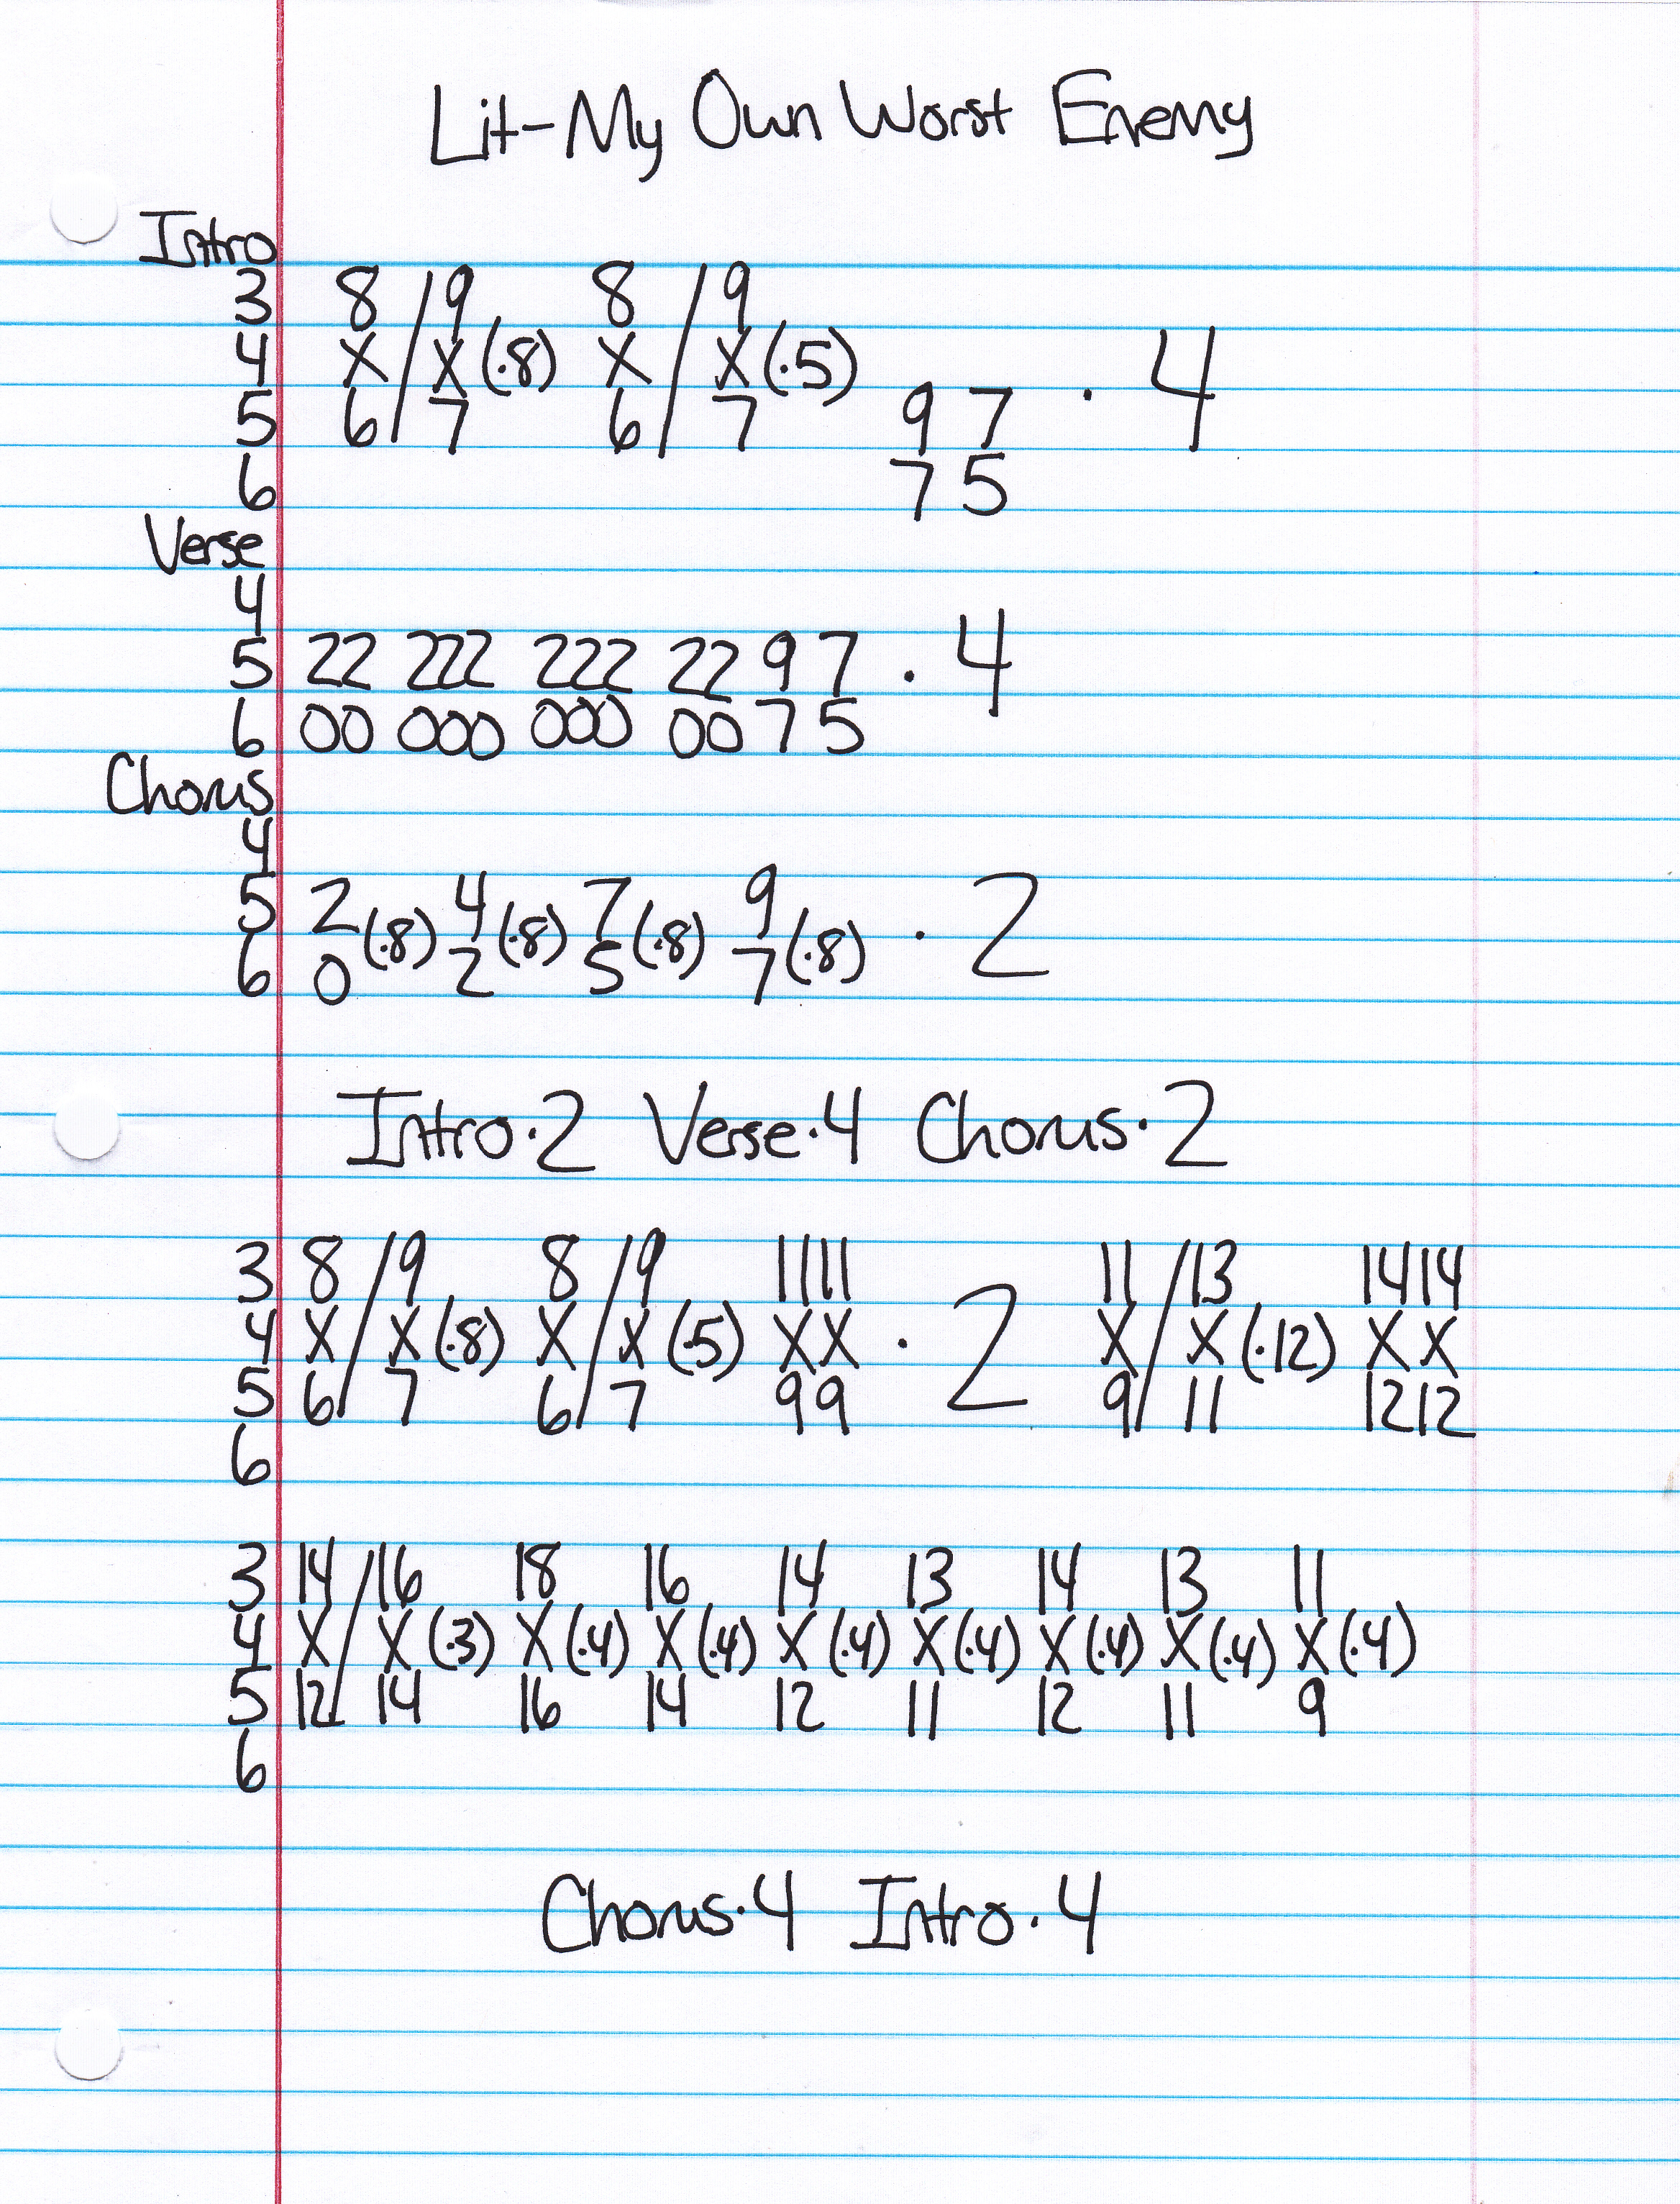 Lit-My Own Worst Enemy
Intro
3 8 / 9 8 / 9
4 X / X (·8) X / X (·5) · 4
5 6 / 7 6 / 7 9 7
6 7 5
Verse
4
5 22 222 222 22 9 7 · 4
6 00 000 000 00 7 5
Chorus
4
5 2 (·8) 4 (·8) 7 (·8) 9 (·8) · 2
6 0 2 5 7
Intro·2 Verse·4 Chorus·2
3 8 / 9 8 / 9 11 11 11 / 13 14 14
4 X / X (·8) X / X (·5) X X · 2 X / X (·12) X X
5 6 / 7 6 / 7 9 9 9 / 11 12 12
6
3 14 / 16 18 16 14 13 14 13 11
4 X / X (·3) X (·4) X (·4) X (·4) X (·4) X (·4) X (·4) X (·4)
5 12 / 14 16 14 12 11 12 11 9
6
Chorus·4 Intro·4